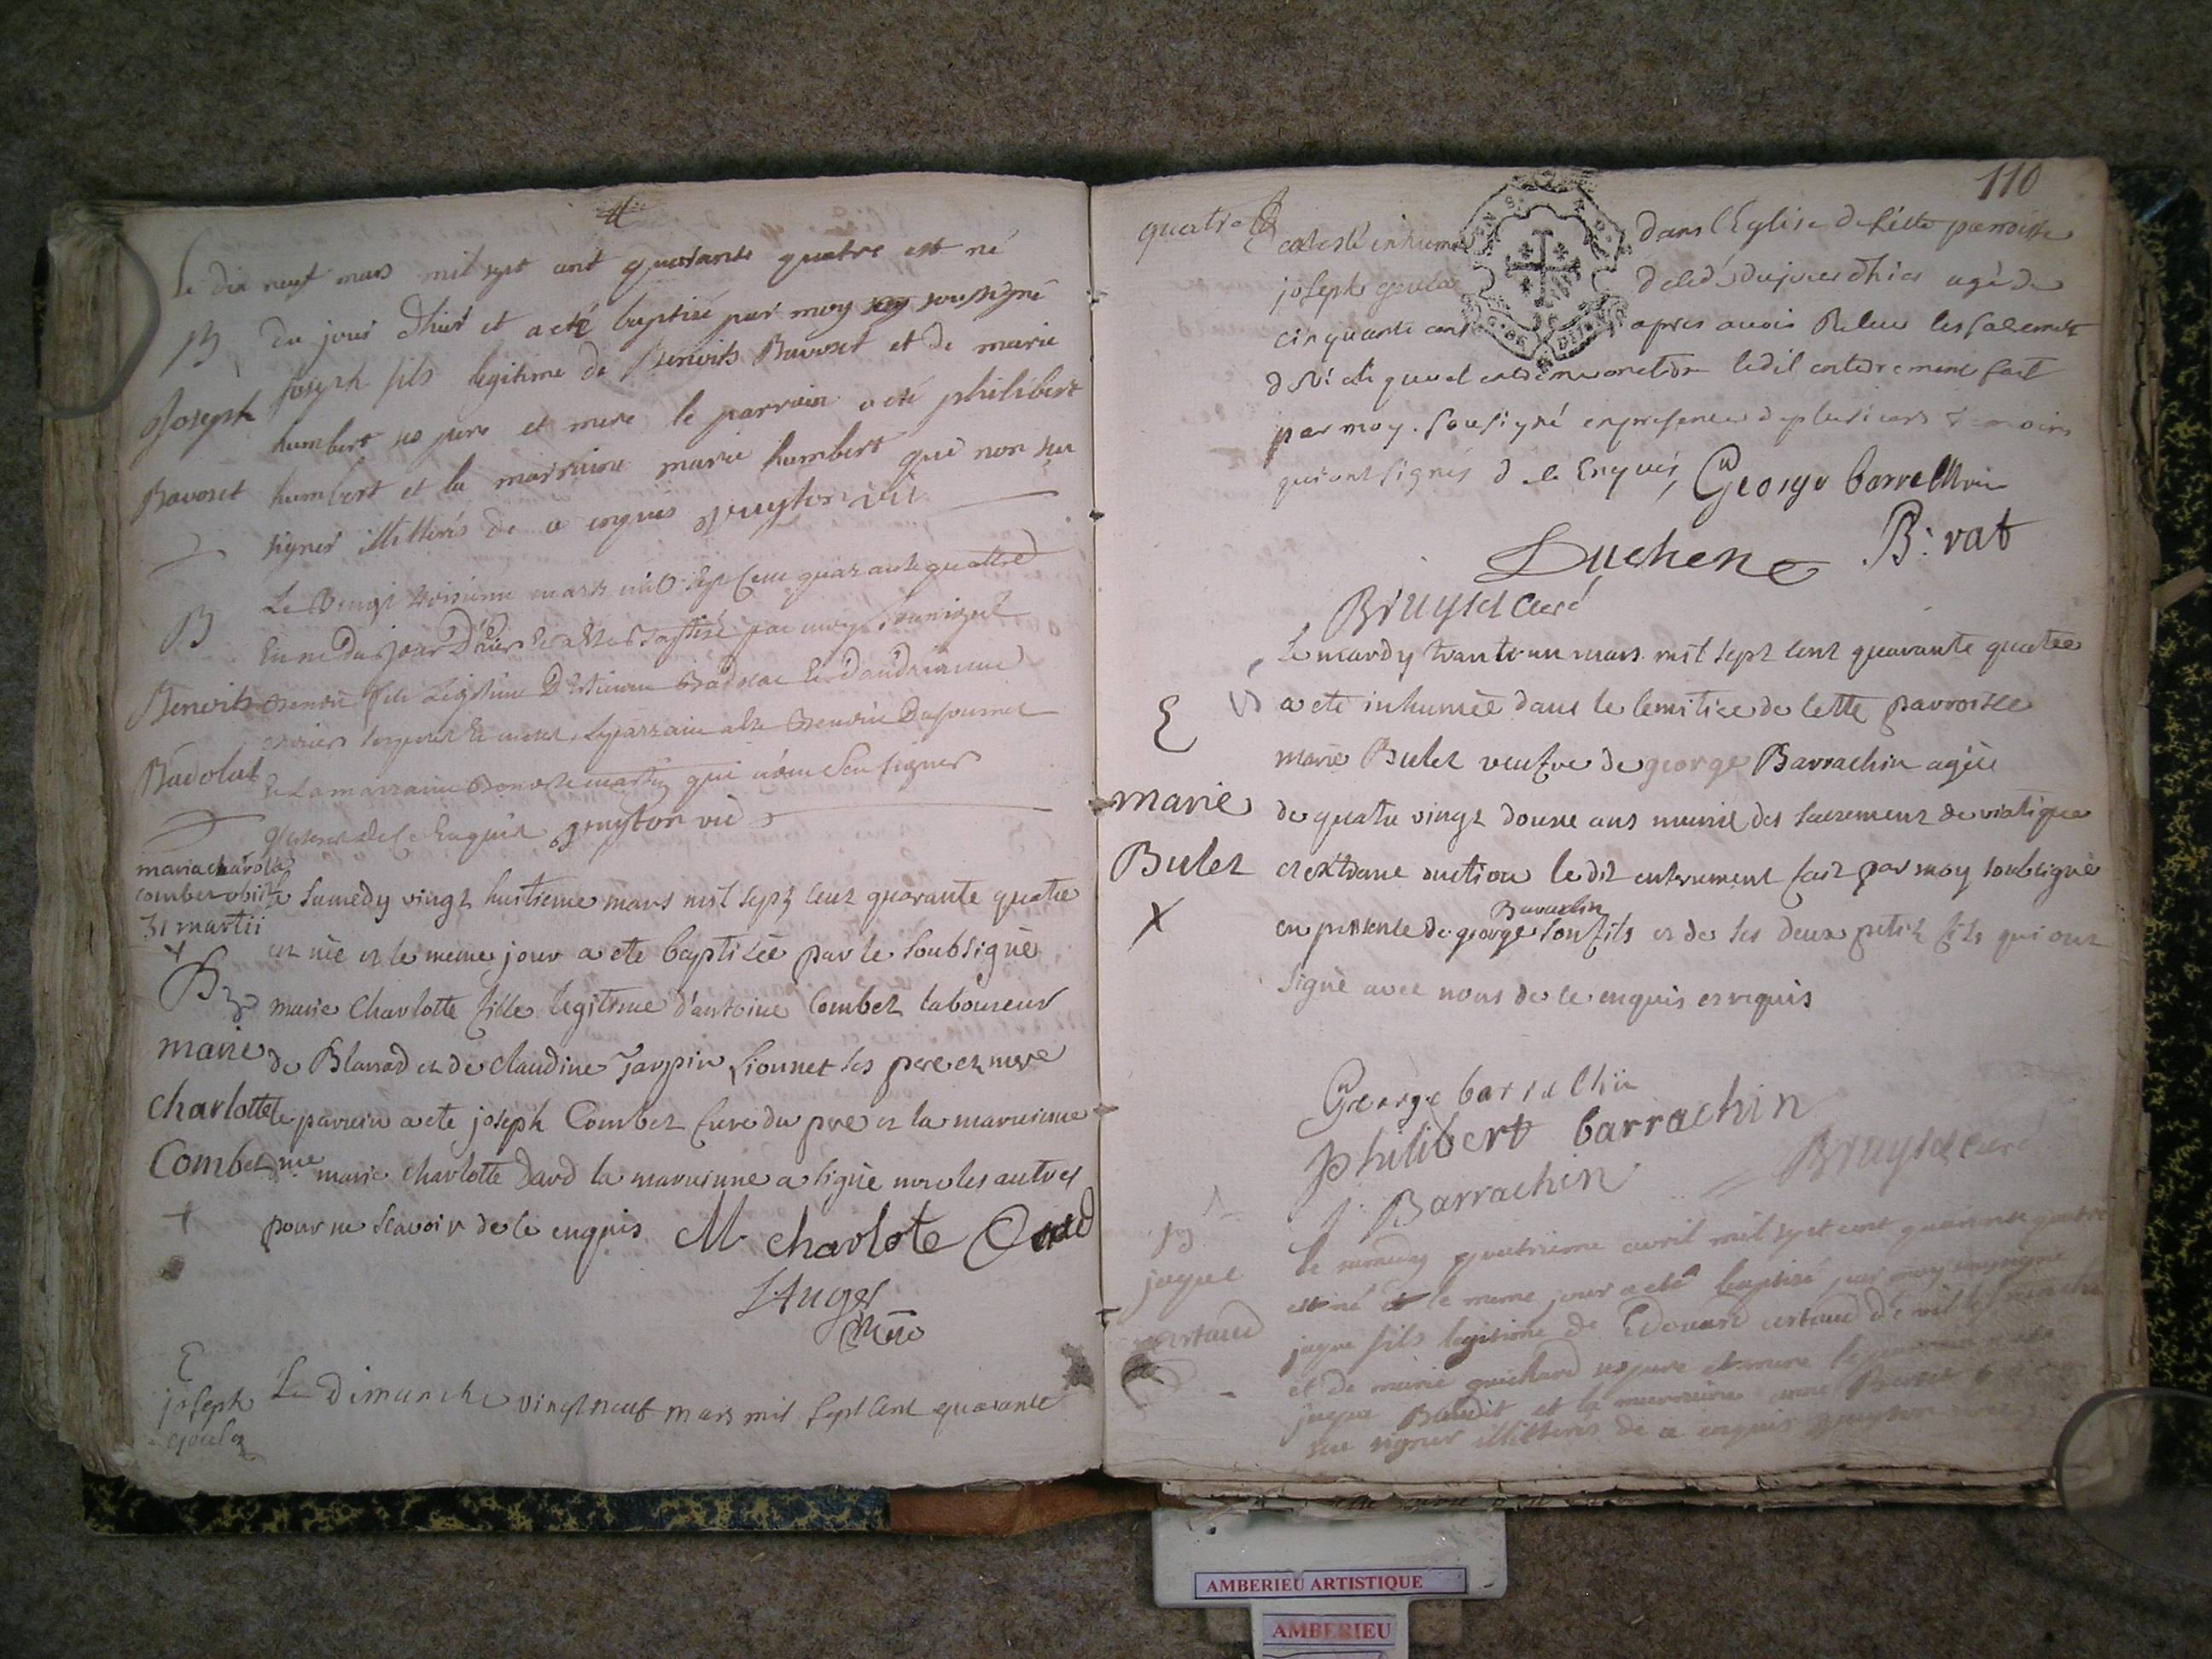 4
Le dix neuf mars mil sept cent quarante quatre est né
B du jour d'hier et a eté baptisé par moy soussigné
Joseph joseph fils legitime de Benoits Bavoset et de marie
humbert ses pere et mere le parrain a eté philibert
Bavoset humbert et la marraine marie humbert qui n'ont su
signer illitterés de ce enquis guyton vic
B Le vingt troisieme mars mil sept cent quarante quattre
Est né du jour D'hier Et a Esté Baptisé par moy soussigné
Benoits Benoit fils Legitime D'Estienne Badolat Et d'andrianne
ses pere Et mere, Le parrain a Esté Benoit Dufournel
Badolat Et La marraine martin qui n'ont Sceu signer
de Ce Enquis guyton vic
maria charolta
combet obiit
31 martii
Le samedy vingt huitieme mars mil sept cent quarante quatre
est née et le meme jour a ete baptisée par le soubsigné
B marie Charlotte fille legitime d'antoine Combet laboureur
marie de Blanad et de claudine Jarpin Lionnet ses pere et mere
charlotte le parrein a ete joseph Combet frere du pere et la marreinne
Combet me marie charlotte Dard la marreinne a signé non les autres
+ pour ne scavoir de ce enquis M charlote Dard
LAuger
E
joseph Le Dimanche vingt neuf mars mil sept cent quarante
goulaz
110
quatre a esté inhumé dans l'Eglise de cette parroisse
joseph goulaz decedé du jour d'hier agé de
cinquante ans apres avoir Receu les sacements
de viatique et extreme onction ledit enterement fait
par moy sousigné en presence de plusieurs temoins
qui ont signés de ce Enquis George barrachin
Duchene B: vat
Bruyset Curé
Le mardy trente un mars mil sept cent quarante quatre
E a ete inhumée dans le cemitiere de cette parroisse
marie Bulet veufve de george Barrachin agée
marie de quatre vingt douze ans munie des sacrements de viatique
Bulet et extreme onction le dit enterrement fait par moy soubsigné
Barrachin
X en presence de george son fils et de ses deux petits fils qui ont
signé avec nous de ce enquis et requis
George barrachin
philibert barrachin
J. Barrachin Bruyset Curé
B
jaque le samedy quatrieme avril mil sept cent quarante quatre
est né et le meme jour a eté baptisé par moy soussigné
ertaud jaque fils legitime de Edouard ertaud de
et de marie guichard ses pere et mere le parrain a eté
jaque Baudit et la marraine
su signer illitterés de ce enquis guyton
AMBERIEU ARTISTIQUE
AMBERIEU